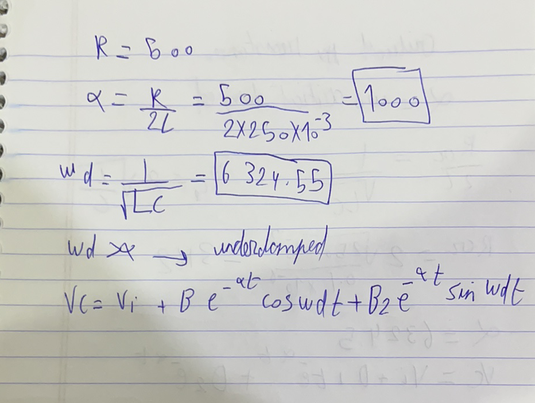 R = 500
α = R/2L = 500/2×250×10^-3 = 1000
wd = 1/√LC = 6324.55
wd >α → underdamped
Vc = Vi + B e^-αt cos wdt + B2 e^-αt sin wdt